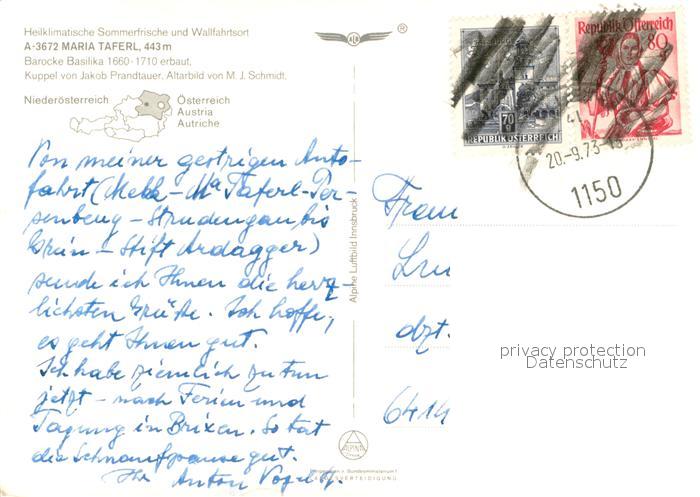 Heilklimatische Sommerfrische und Wallfahrtsort
A-3672 MARIA TAFERL, 443 m
Barocke Basilika 1660-1710 erbaut,
Kuppel von Jakob Prandtauer, Altarbild von M. J. Schmidt.
Niederösterreich
Österreich
Austria
Autriche
®
Von meiner gestrigen Auto-
fahrt (Melk - Mª Taferl-Per-
senbeug - Strudengau, bis
Grein - Stift Ardagger)
sende ich Ihnen die herz-
lichsten Grüße. Ich hoffe,
es geht Ihnen gut.
Ich habe ziemlich zu tun
jetzt - nach Ferien und
Tagung in Brixen. So tat
die Schnaufpause gut.
Ihr Anton
Alpine Luftbild Innsbruck
ALPINE
70 g
REPUBLIK ÖSTERREICH
Republik Österreich
80
20.-9.73-1
1150
Frau
dzt.
6414
privacy protection
Datenschutz